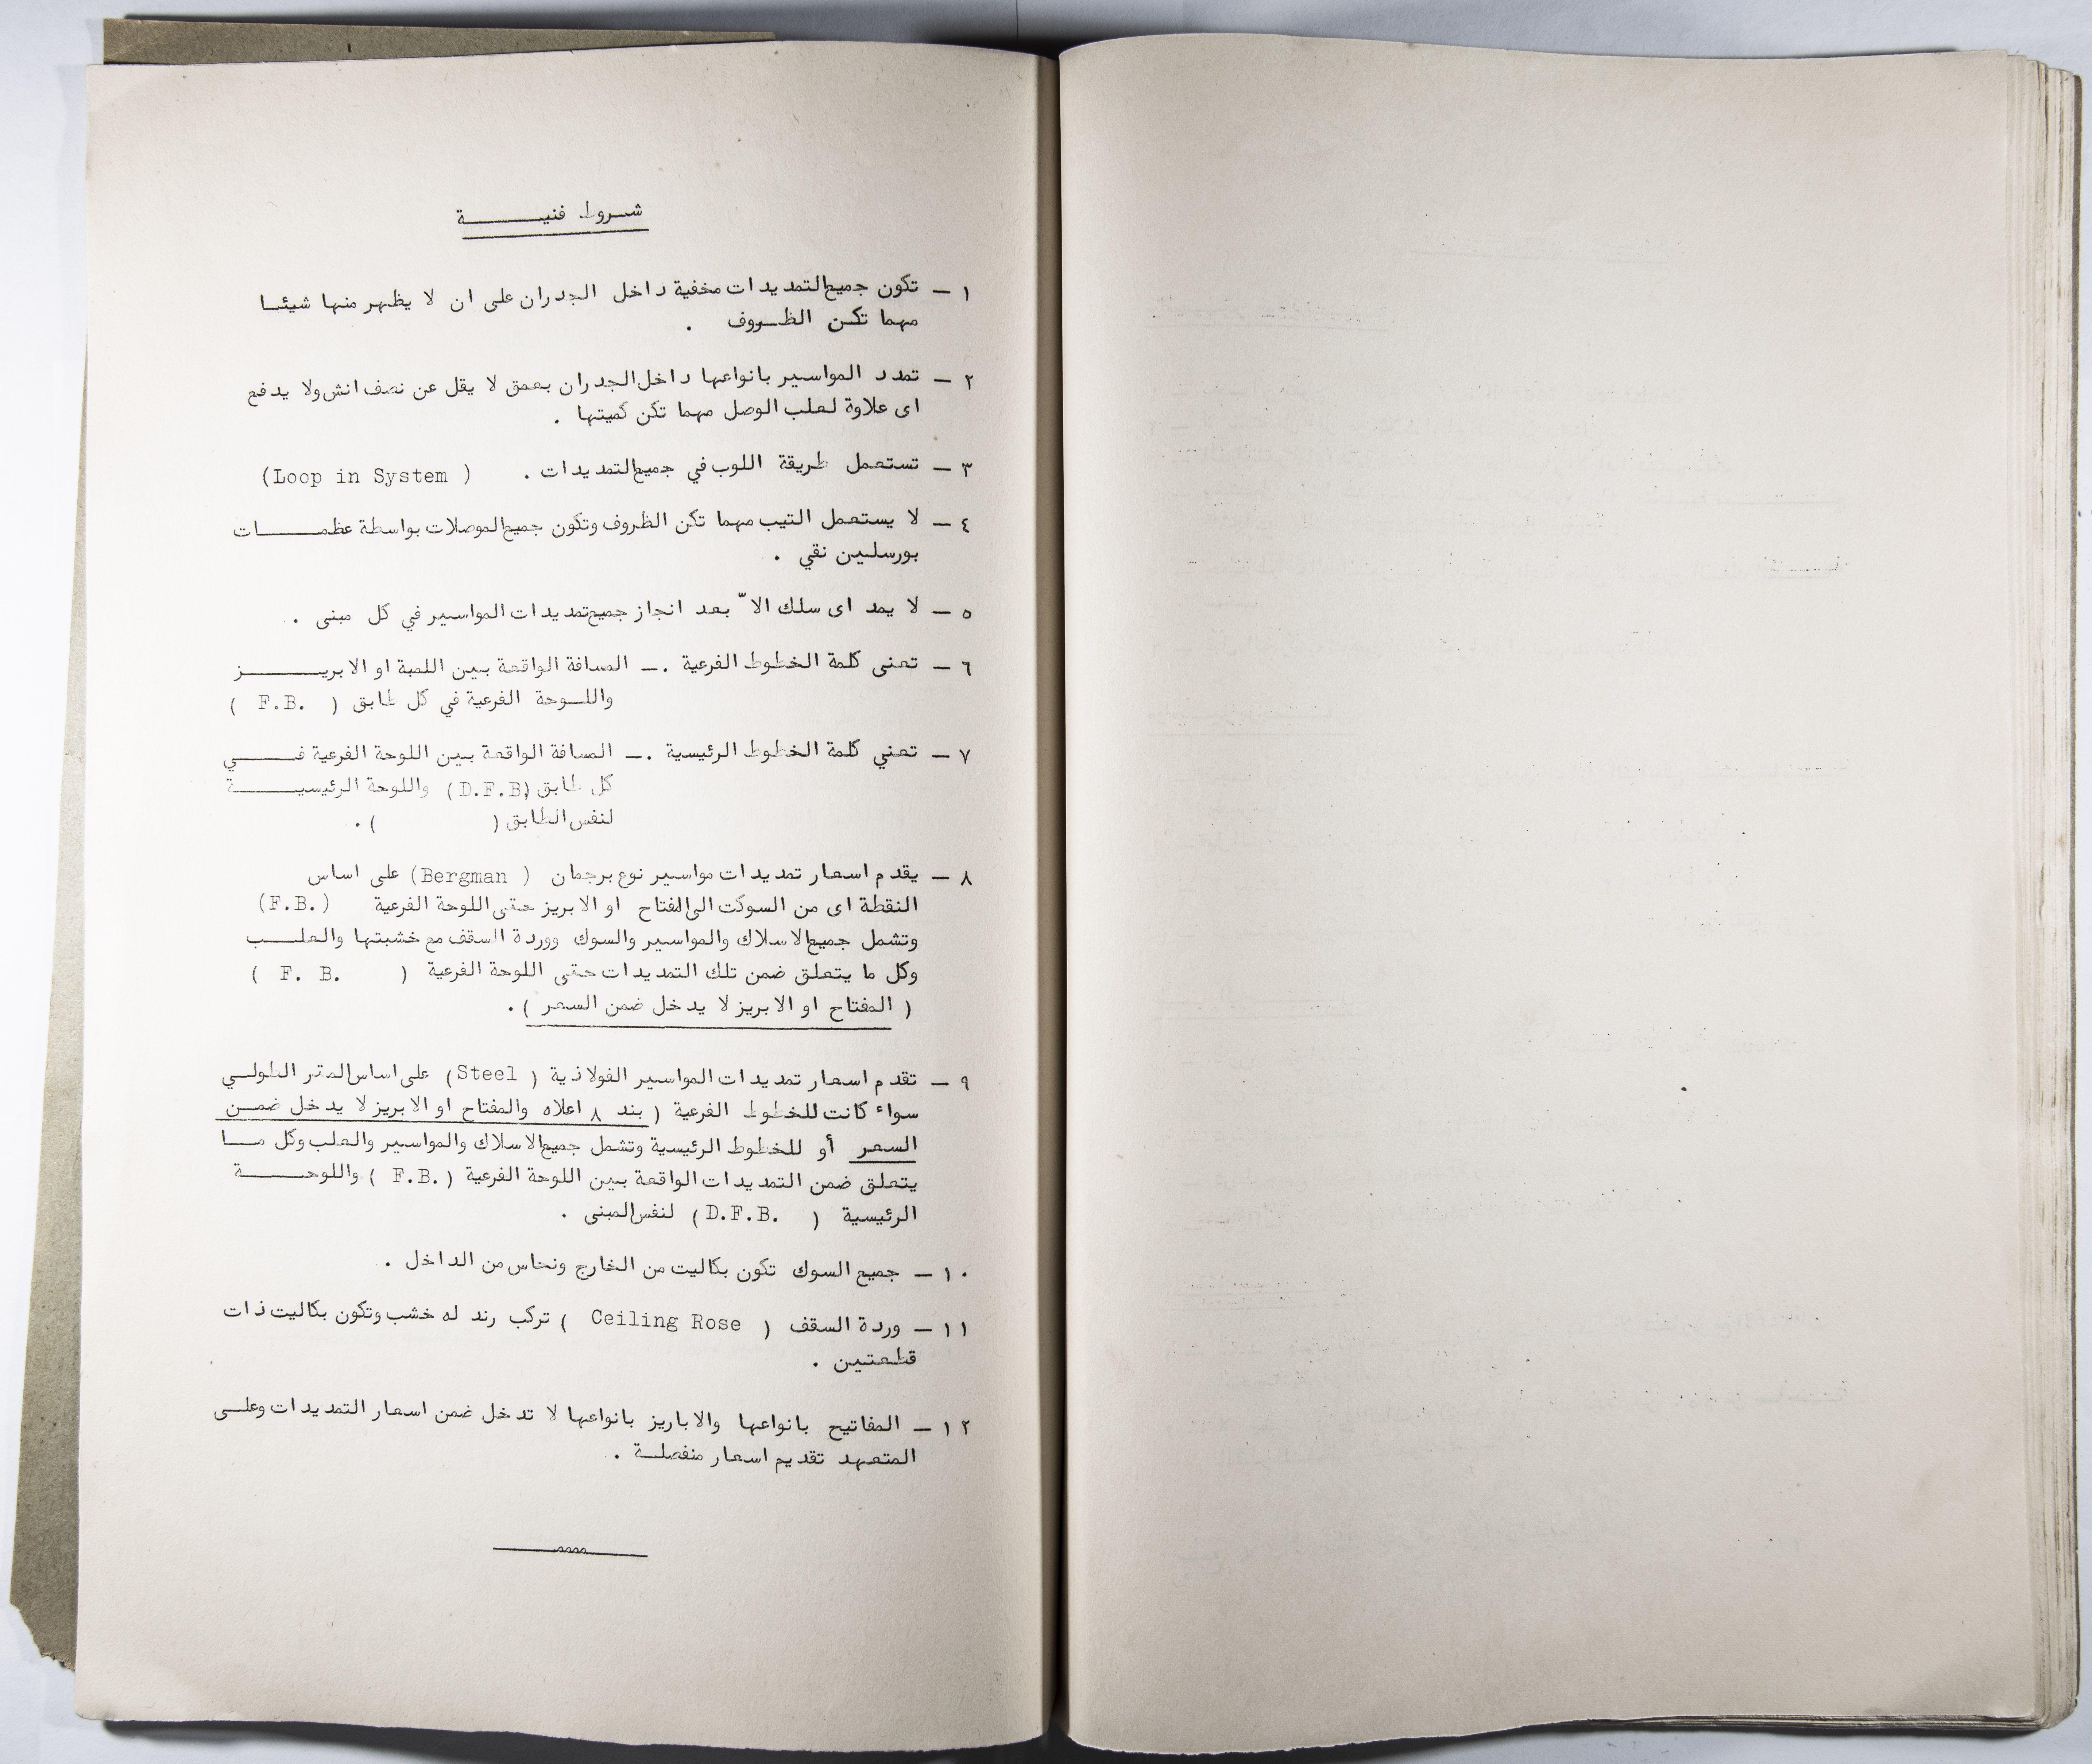 شــروط فنيـــــــة
١ – تكون جميع التمديدات مخفية داخل الجدران على ان لا يظهر منها شيئــا
مهما تكـن الظــروف .
٢ – تمدد المواسير بانواعها داخل الجدران بعمق لا يقل عن نصف انش ولا يدفع
اى علاوة لعلب الوصل مهما تكن كميتها .
٣ – تستعمل طريقة اللوب في جميع التمديدات . (Loop in System )
٤ – لا يستعمل التيب مهما تكن الظروف وتكون جميع الموصلات بواسطة عظمـــــات
بورسلـين نقي .
٥ – لا يمد اى سلك الا ّ بعد انجاز جميع تمديدات المواسير في كل مبنى .
٦ – تعنى كلمة الخطوط الفرعية .– المسافة الواقعة بـين اللمبة او الابريـــــــز
واللــوحة الفرعية في كل طابق ( F.B. )
٧ – تعني كلمة الخطوط الرئيسية .– المسافة الواقعة بـين اللوحة الفرعية فـــــي
كل طابق (D.F.B) واللوحة الرئيسيـــــــة
لنفس الطابق ( ) .
٨ – يقدم اسعار تمديدات مواسير نوع برجمان (Bergman ) على اساس
النقطة اى من السوكت الى المفتاح او الابريز حتى اللوحة الفرعية (F.B.)
وتشمل جميع الاسلاك والمواسير والسوك ووردة السقف مع خشبتها والعلـــب
وكل ما يتعلق ضمن تلك التمديدات حتى اللوحة الفرعية ( F. B. )
( المفتاح او الابريز لا يدخل ضمن السعر ) .
٩ – تقدم اسعار تمديدات المواسير الفولاذية (Steel ) على اساس المتر الطولــي
سواء كانت للخطوط الفرعية ( بند ٨ اعلاه والمفتاح او الابريز لا يدخل ضمــن
السعر أو للخطوط الرئيسية وتشمل جميع الاسلاك والمواسير والعلب وكل مـــا
يتعلق ضمن التمديدات الواقعة بـين اللوحة الفرعية ( F.B. ) واللوحـــــة
الرئيسية (D.F.B. ) لنفس المبنى .
١٠ – جميع السوك تكون بكاليت من الخارج ونحاس من الداخل .
١١ – وردة السقف ( Ceiling Rose ) تركب رند له خشب وتكون بكاليت ذات
قطعتين .
١٢ – المفاتيح بانواعها والاباريز بانواعها لا تدخل ضمن اسعار التمديدات وعلــى
المتعهد تقديم اسعار منفصلــة .